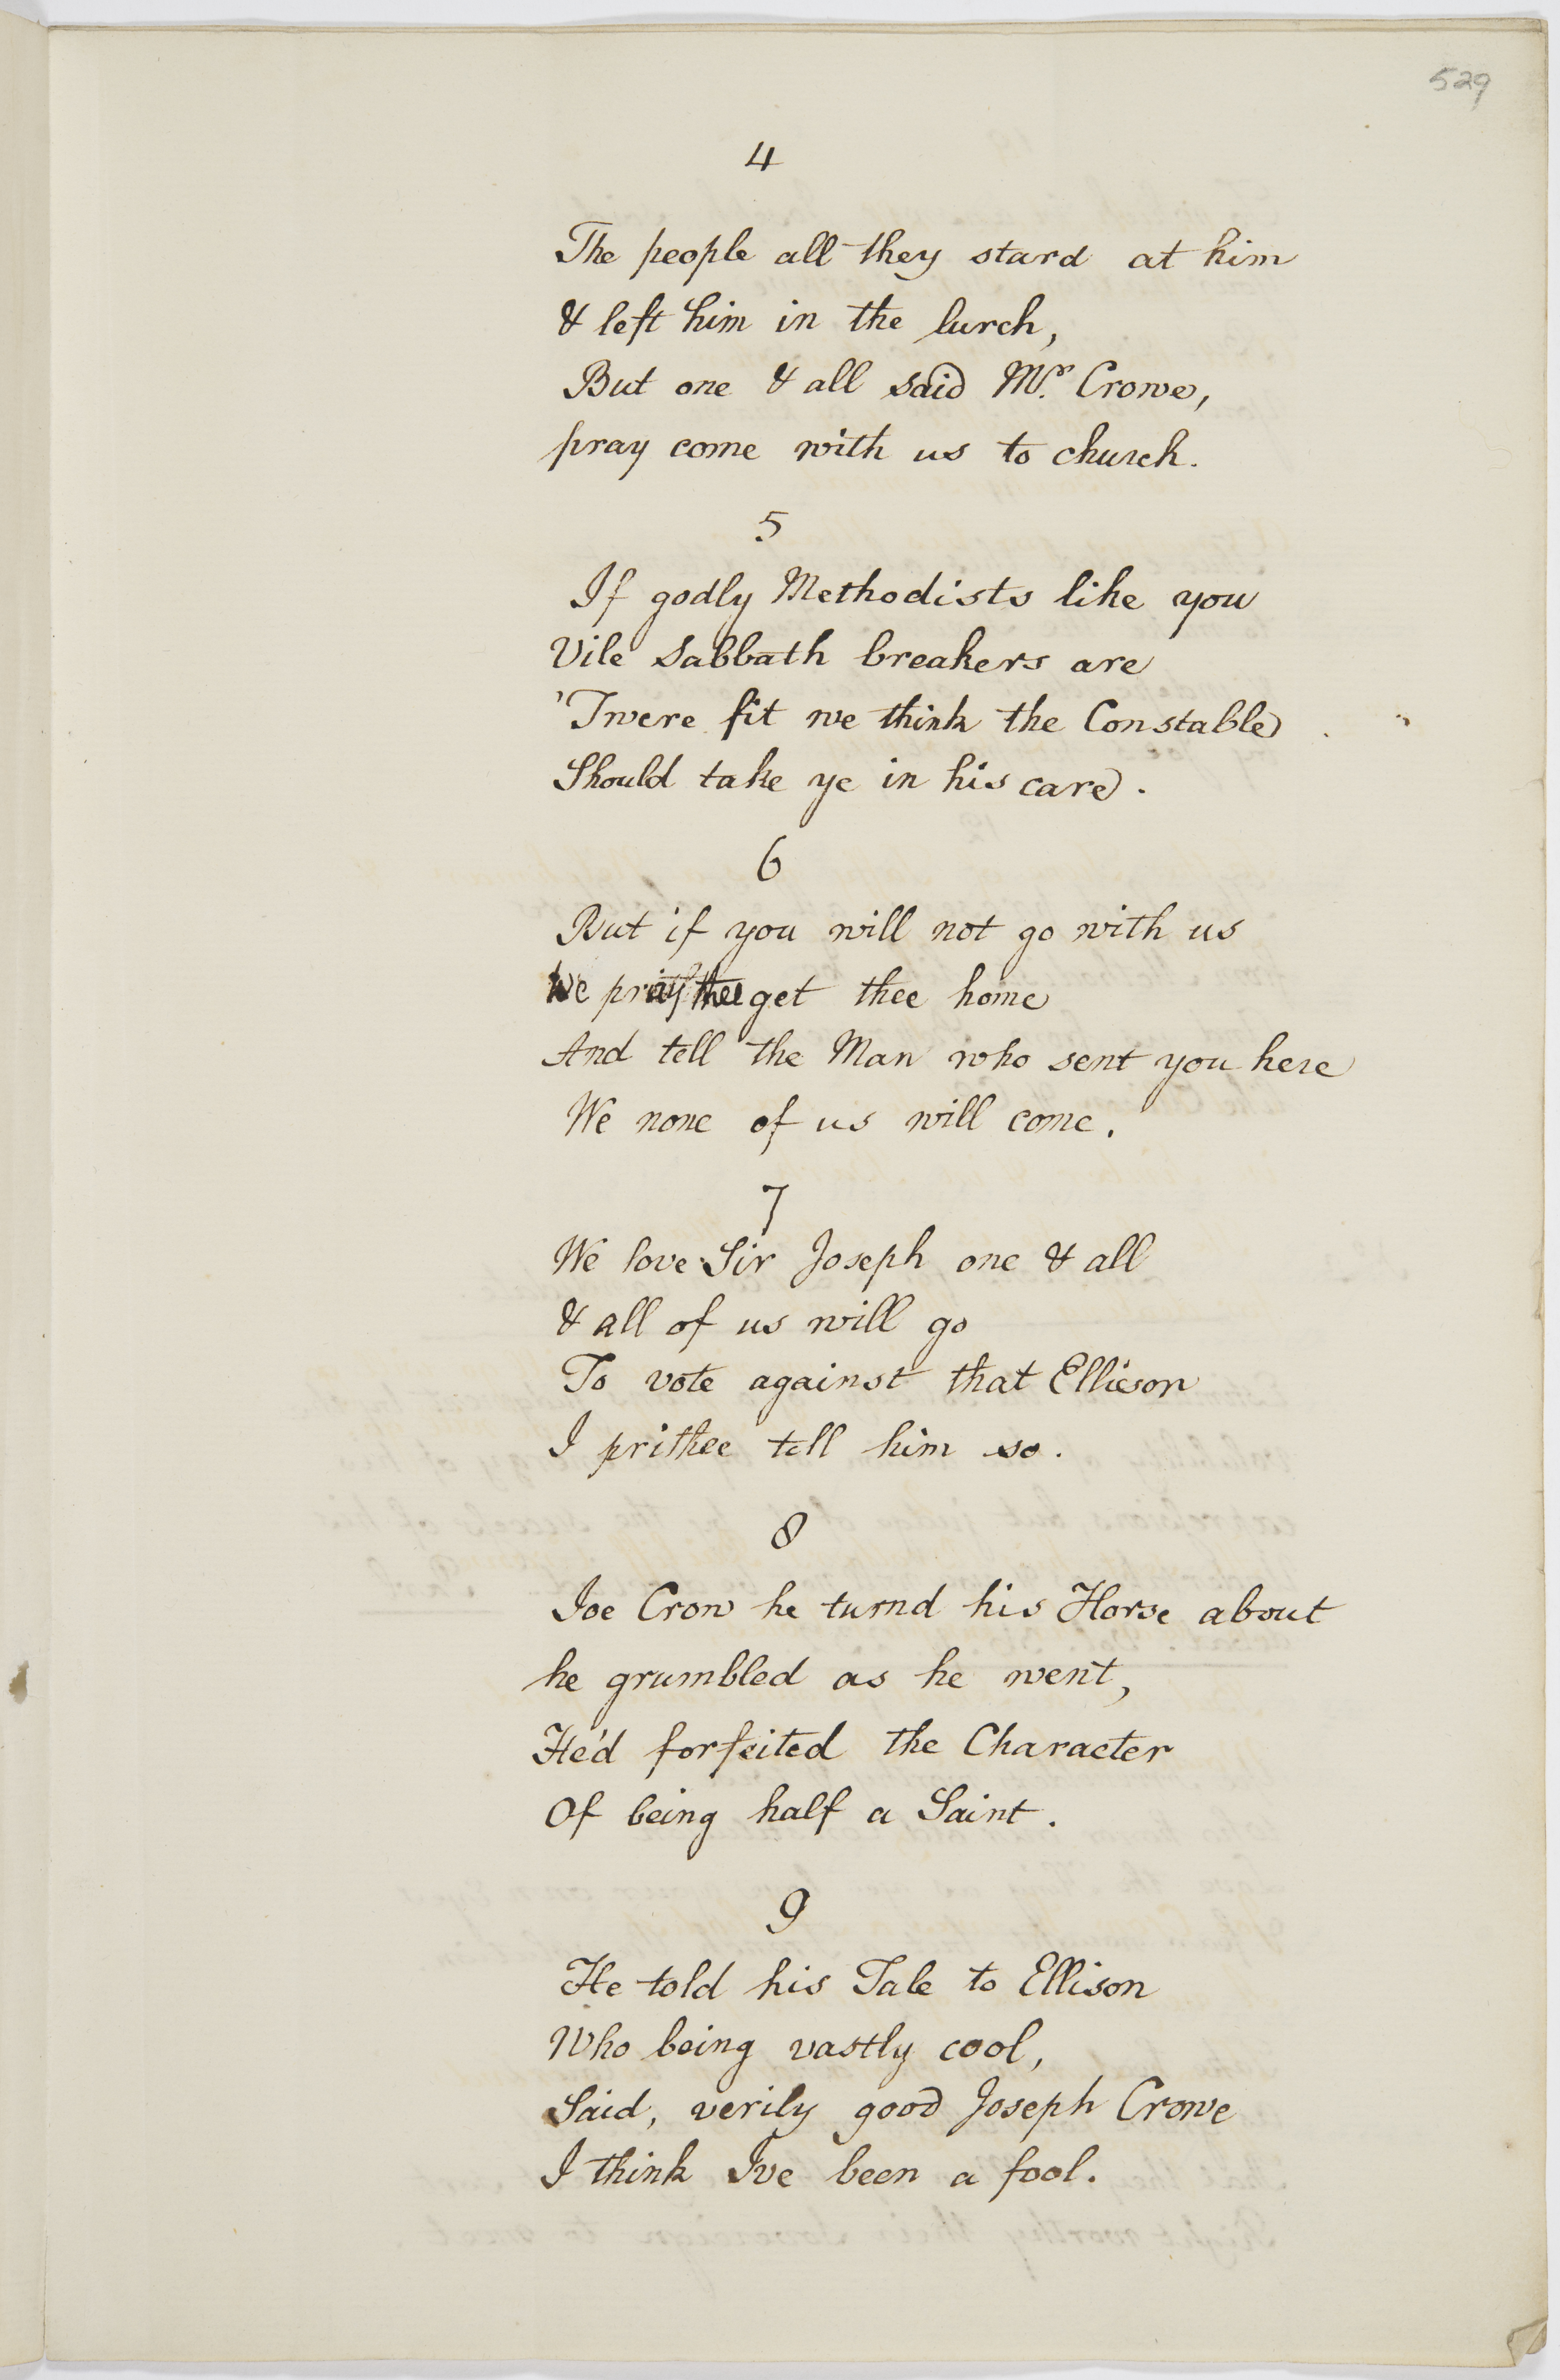 529
4
The people all they stard at him
& left him in the lurch,
But one & all said Mr. Crowe,
pray come with us to church.
5
If godly Methodists like you
Vile Sabbath breakers are
'Twere fit we think the Constable
Should take ye in his care.
6
But if you will not go with us
We pray thee get thee home
And tell the Man who sent you here
We none of us will come.
7
We love Sir Joseph one & all
& all of us will go
To vote against that Ellison
I prithee tell him so.
8
Joe Crow he turnd his Horse about
he grumbled as he went,
He'd forfeited the Character
Of being half a Saint.
9
He told his Tale to Ellison
Who being vastly cool,
Said, verily good Joseph Crowe
I think I've been a fool.